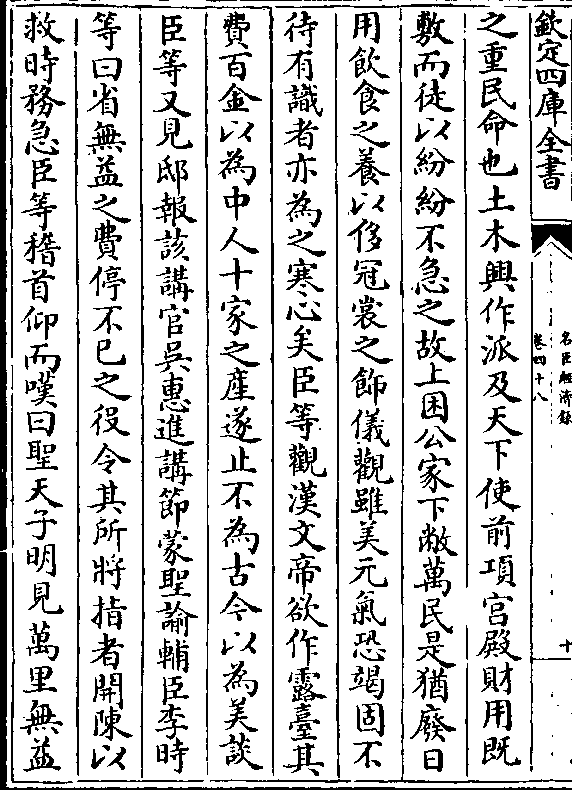 欽定四庫全書
名臣經濟録
卷四十八
十
之重民命也土木興作派及天下使前項宫殿財用既
敷而徒以紛紛不急之故上困公家下敝萬民是猶廢日
用飲食之養以侈冠裳之飾儀觀雖美元氣恐竭固不
待有識者亦為之寒心矣臣等觀漢文帝欲作露臺其
費百金以為中人十家之産遂止不為古今以為美談
臣等又見邸報該講官吳惠進講節蒙聖諭輔臣李時
等曰省無益之費停不已之役令其所將指者開陳以
救時務急臣等稽首仰而嘆曰聖天子明見萬里無益